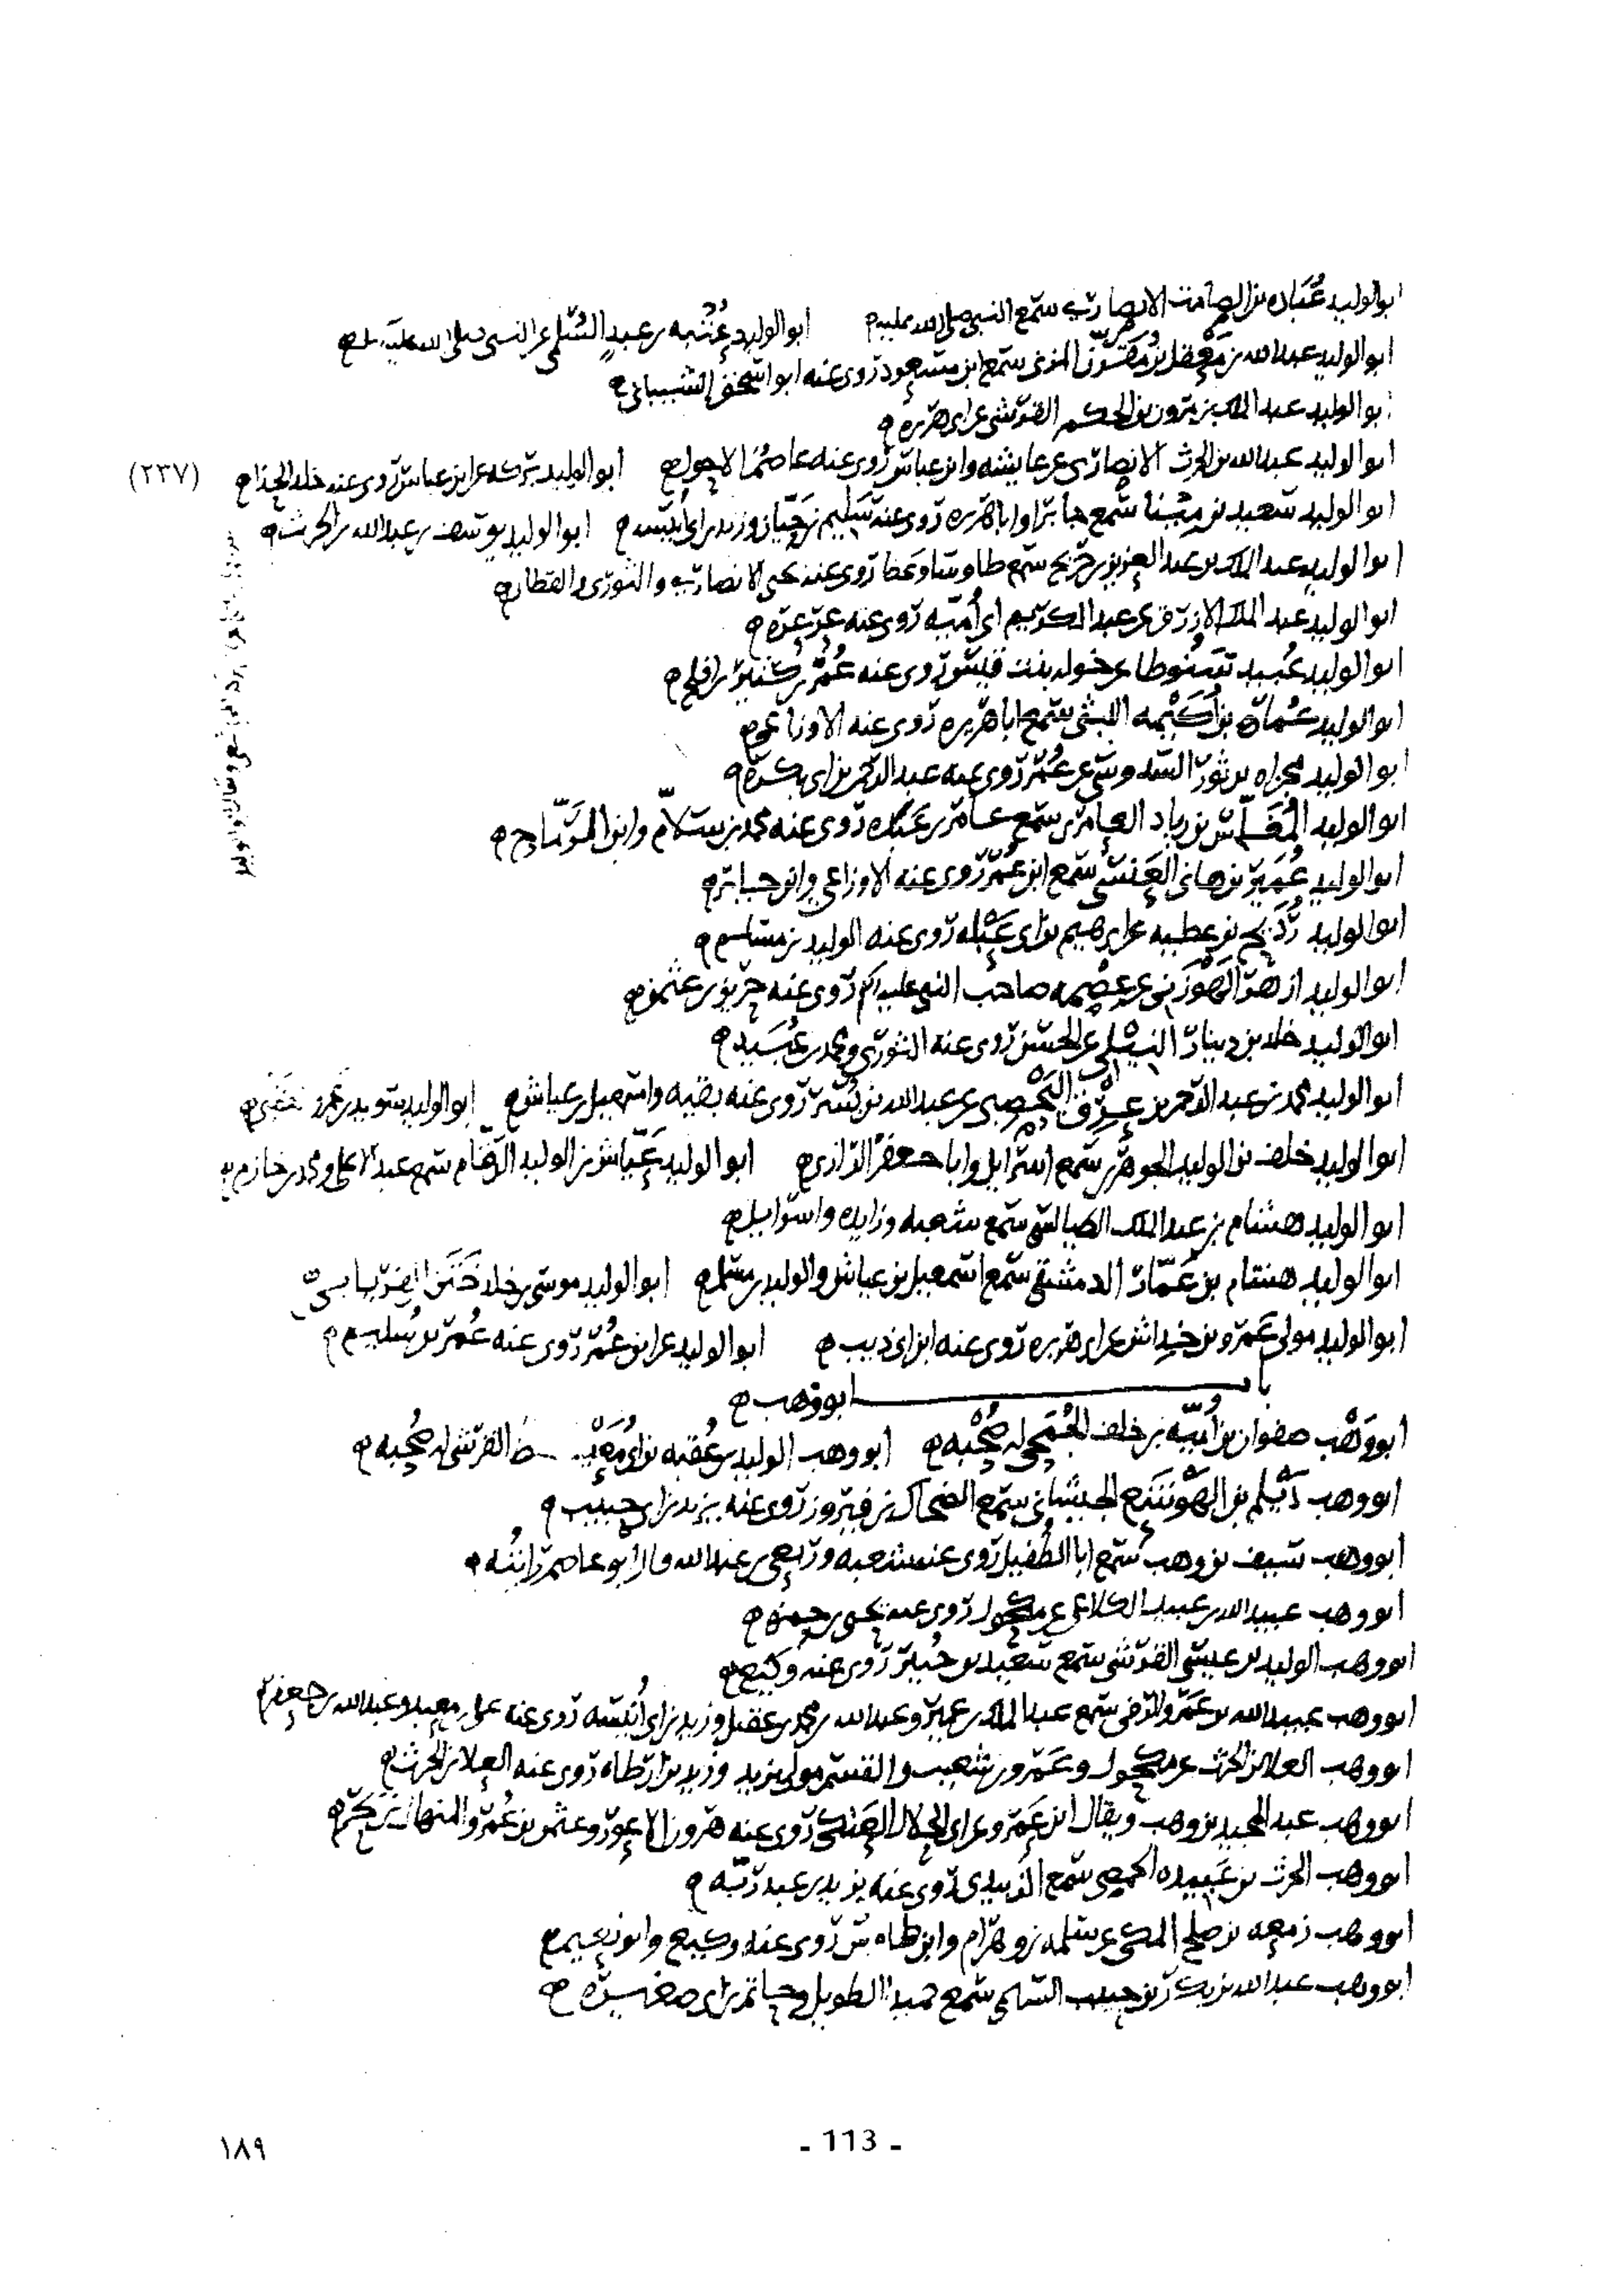 ابو الوليد عُبَاده بن الصامت الانصاري سمع النبي صلى الله عليه ابو الوليد عُتْبه بن عبدٍ السُّلمي عن النبي صلى الله عليه
ابو الوليد عبد الله بن مَعْقل بن مُقَرِّن المزني سمع ابن مسعود روى عنه ابو اسحق الشيباني
ابو الوليد عبد الملك بن مرون بن الحكم القرشي عن ابي هريرة
ابو الوليد عبد الله بن الحرث الانصاري عن عايشه وابن عباس روى عنه عاصم الاحول ابو الوليد بركه عن ابن عباس روى عنه خلد الحذاء (٢٣٧)
ابو الوليد سعيد بن مينا سمع جابرا وابا هريره روى عنه سليم بن حيان وزيد بن ابي انيسه ابو الوليد يوسف بن عبد الله بن الحرث
ابو الوليد عبد الملك بن عبد العزيز بن جريج سمع طاوسا وعطا روى عنه يحيى الانصاري والثوري والقطان
ابو الوليد عبد الملك الازرق عن عبد الكريم ابي أميه روى عنه عرعره
ابو الوليد عُبيد سنوطا عن خوله بنت قيس روى عنه عُمر بن كثير بن افلح
ابو الوليد عماره بن أُكَيْمه الليثي سمع ابا هريره روى عنه
ابو الوليد مجزاه بن ثور السدوسي عن عُمر روى عنه عبد الرحمن بن ابي بكره
ابو الوليد المُغَلِّس بن زياد العامري سمع عامر بن عَبَده روى عنه محمد بن سلّام وابن الرمّاح
ابو الوليد عُمَير بن هانى العَنسي سمع ابن عُمر روى عنه الاوزاعي وابن جابر
ابو الوليد رُدَيح بن عطيه عن ابرهيم بن ابي عَبْله روى عنه الوليد بن مسلم
ابو الوليد ازهر الهَوْزني عن عصمه صاحب النبي عليه السلم روى عنه حريز بن عثمن
ابو الوليد خلد بن دينار النيلي عن الحسن روى عنه الثوري ومحمد بن عُبَيد
ابو الوليد محمد بن عبد الرحمن بن عِرْق اليَحْصبي عن عبد الله بن بُسْر روى عنه بقيه واسمعيل بن عياش ابو الوليد سويد بن عمرو
ابو الوليد خلف بن الوليد الجوهري سمع اسرايل وابا جعفر الرازي ابو الوليد عَيّاش بن الوليد الرقّام سمع عبد الاعلى ومحمد بن خازم
ابو الوليد هشام بن عبد الملك الطيالسي سمع شعبه وزايده واسرايل
ابو الوليد هشام بن عَمّار الدمشقي سمع اسمعيل بن عياش والوليد بن مسلم ابو الوليد موسى بن خلد خَتَن الفريابي
ابو الوليد مولى عمرو بن خداش عن ابي هريره روى عنه ابن ابي ذيب ابو الوليد عن ابن عُمر روى عنه عُمر بن سُليم
باب ابو وهب
ابو وَهْب صفوان بن أُميّه بن خلف الجُمَحي له صُحْبه ابو وهب الوليد بن عُقبه بن ابي مُعَيْط القرشي له صُحبه
ابو وهب دَيْلم بن الهَوْسَع الجيشاني سمع الضحاك بن فيروز روى عنه يزيد بن ابي حبيب
ابو وهب سيف بن وهب سمع ابا الطُفيل روى عنه شعبه وربعي بن عبد الله وقال ابو عاصم رأيتُه
ابو وهب عبيد الله بن عبيد الكلاعي عن مكحول روى عنه يحيى بن حمزه
ابو وهب الوليد بن عيسى القرشي سمع سعيد بن جُبير روى عنه وكيع
ابو وهب عبيد الله بن عَمرو الرقي سمع عبد الملك بن عمير وعبد الله بن محمد بن عقيل وزيد بن ابي أُنيسه روى عنه علي بن معبد وعبد الله بن جعفر
ابو وهب العلا بن الحرث عن مكحول وعَمرو بن شعيب والقسم مولى يزيد وزيد بن ارطاه روى عنه العلا بن الحرث
ابو وهب عبد المجيد بن وهب ويقال ابن عَمرو عن ابي الجلال العتكي روى عنه هرون الاعور وعثمن بن عُمر والمنهال بن بَحر
ابو وهب الحرث بن عَبيده الحمصي سمع الزبيدي روى عنه يزيد بن عبد ربّه
ابو وهب زمعه بن صلح المكي عن سلمه بن وهرام وابن طاوس روى عنه وكيع وابو نعيم
ابو وهب عبد الله بن بكر بن حبيب السهمي سمع حميدا الطويل وحاتم بن ابي صغيره
- 113 -
١٨٩